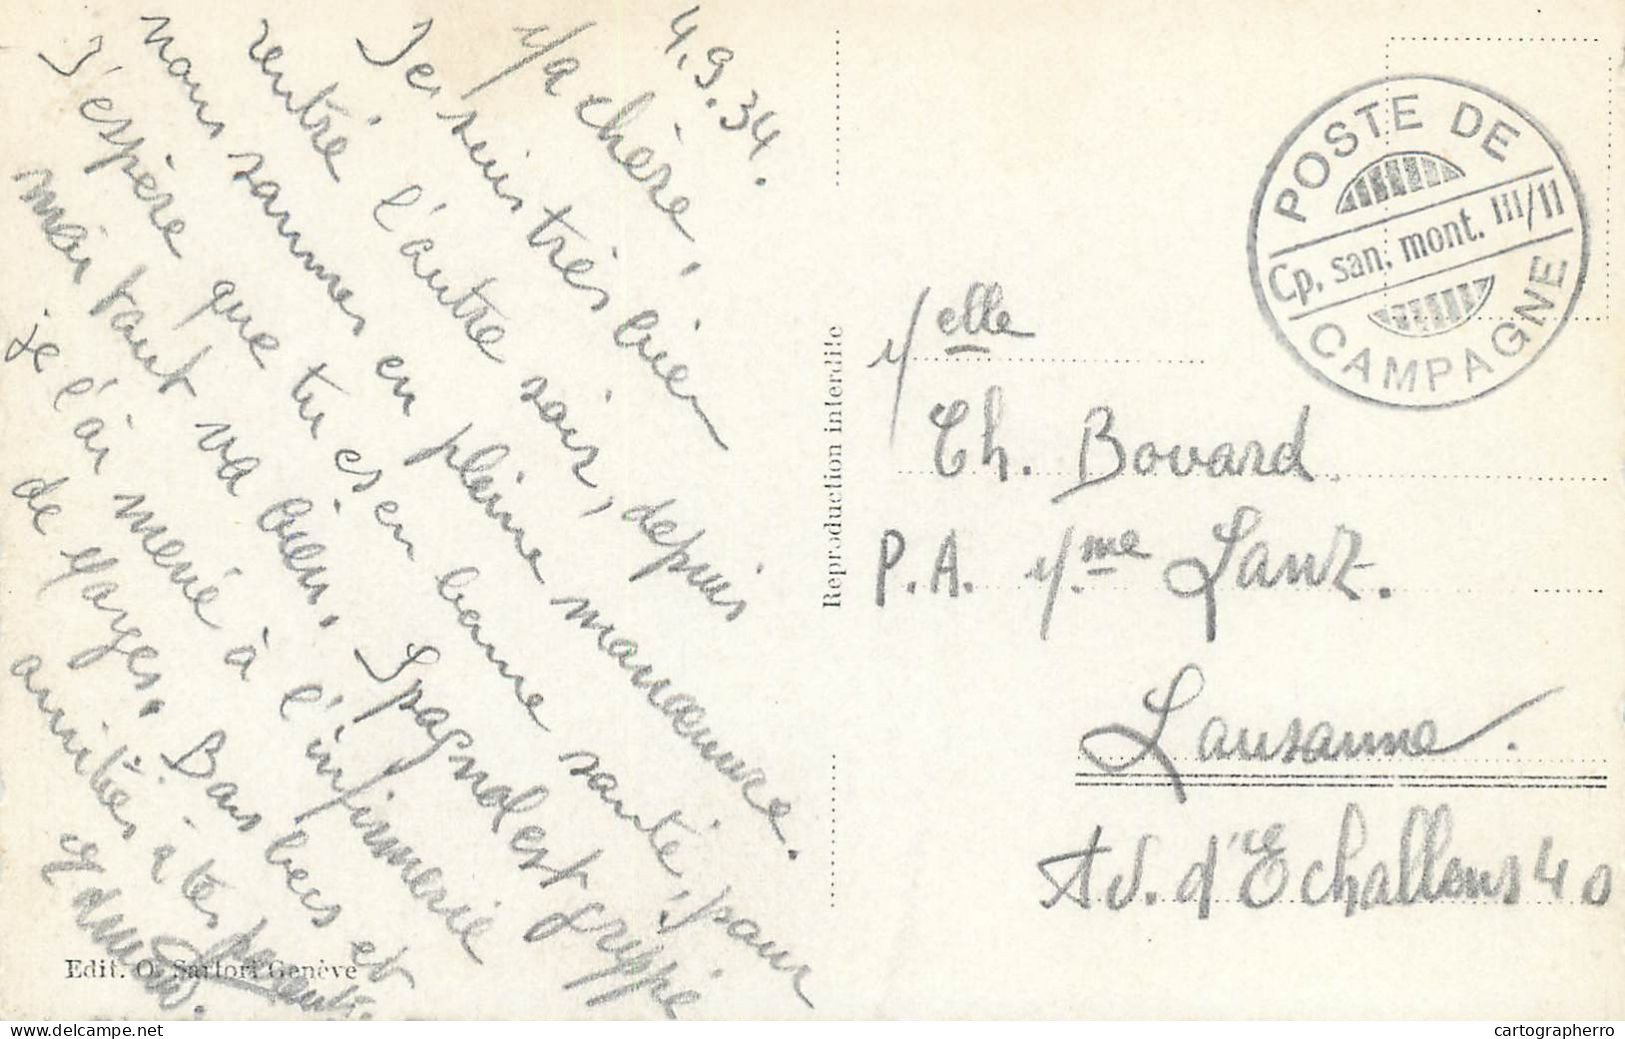 4.9.34.
Ma chère,
Je suis très bien
rentré l'autre soir, depuis
nous sommes en pleine manœuvre.
J'espère que tu es en bonne santé, pour
moi tout va bien. Spagnol est grippé
je l'ai mené à l'infirmerie
de Morges. Bons becs et
amitiés à tes parents.
Edmond.
Edit. O. Sartori Genève
Reproduction interdite
POSTE DE
Cp. san. mont. III/11
CAMPAGNE
Melle
Th. Bovard
P.A. Mme Lanz.
Lausanne.
Av. d'Echallens 40
www.delcampe.net
cartographerro